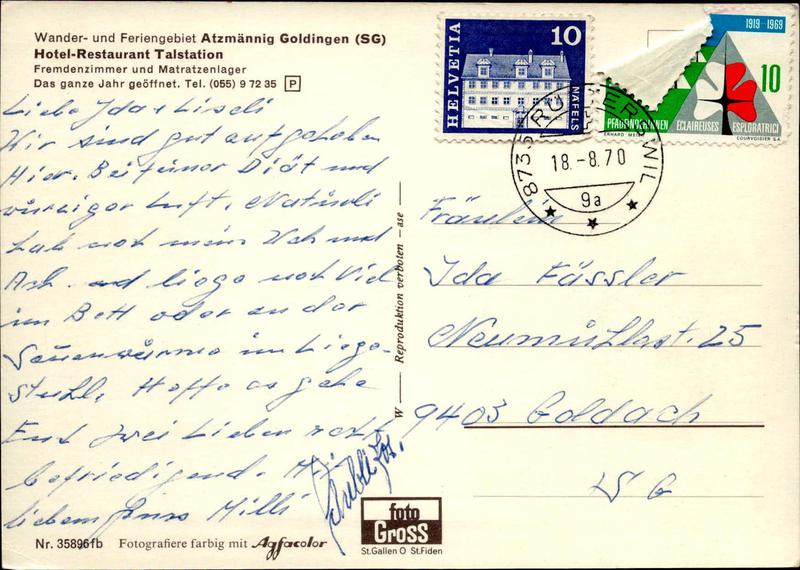 Wander- und Feriengebiet Atzmännig Goldingen (SG)
Hotel-Restaurant Talstation
Fremdenzimmer und Matratzenlager
Das ganze Jahr geöffnet. Tel. (055) 9 72 35 P
Liebe Ida + Liseli
Wir sind gut aufgehoben
Hier. Bei feiner Diät und
würziger Luft. Natürli
hab noch mein Weh und
Ach. und liege noch Viel
im Bett oder an der
Sonnenwärme im Liege-
Stuhl. Hoffe es gehe
Euch zwei Lieben recht
befriedigend. Mit
liebem Gruss Milli
Nr. 35896fb Fotografiere farbig mit Agfacolor
W — Reproduktion verboten - ase —
foto
Gross
St.Gallen O St.Fiden
HELVETIA
10
NÄFELS
1919-1969
10
PFADFINDERINNEN ECLAIREUSES ESPLORATRICI
COURVOISIER S.A.
18.-8.70
9a
Fräulein
Ida Fässler
Neumühlestr. 25
9403 Goldach
SG